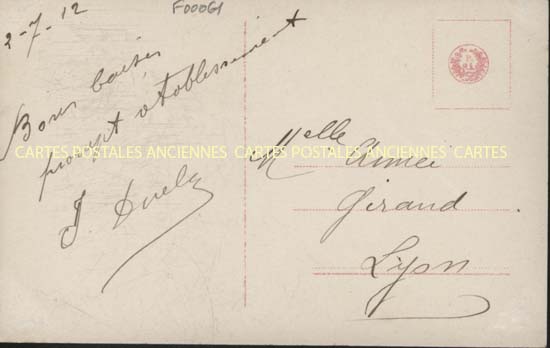 F00061
2-7-12
Bons baisers
prompt établissement
J. Duely
CARTES POSTALES ANCIENNES CARTES POSTALES ANCIENNES CARTES
Melle Aimée
Girand
Lyon